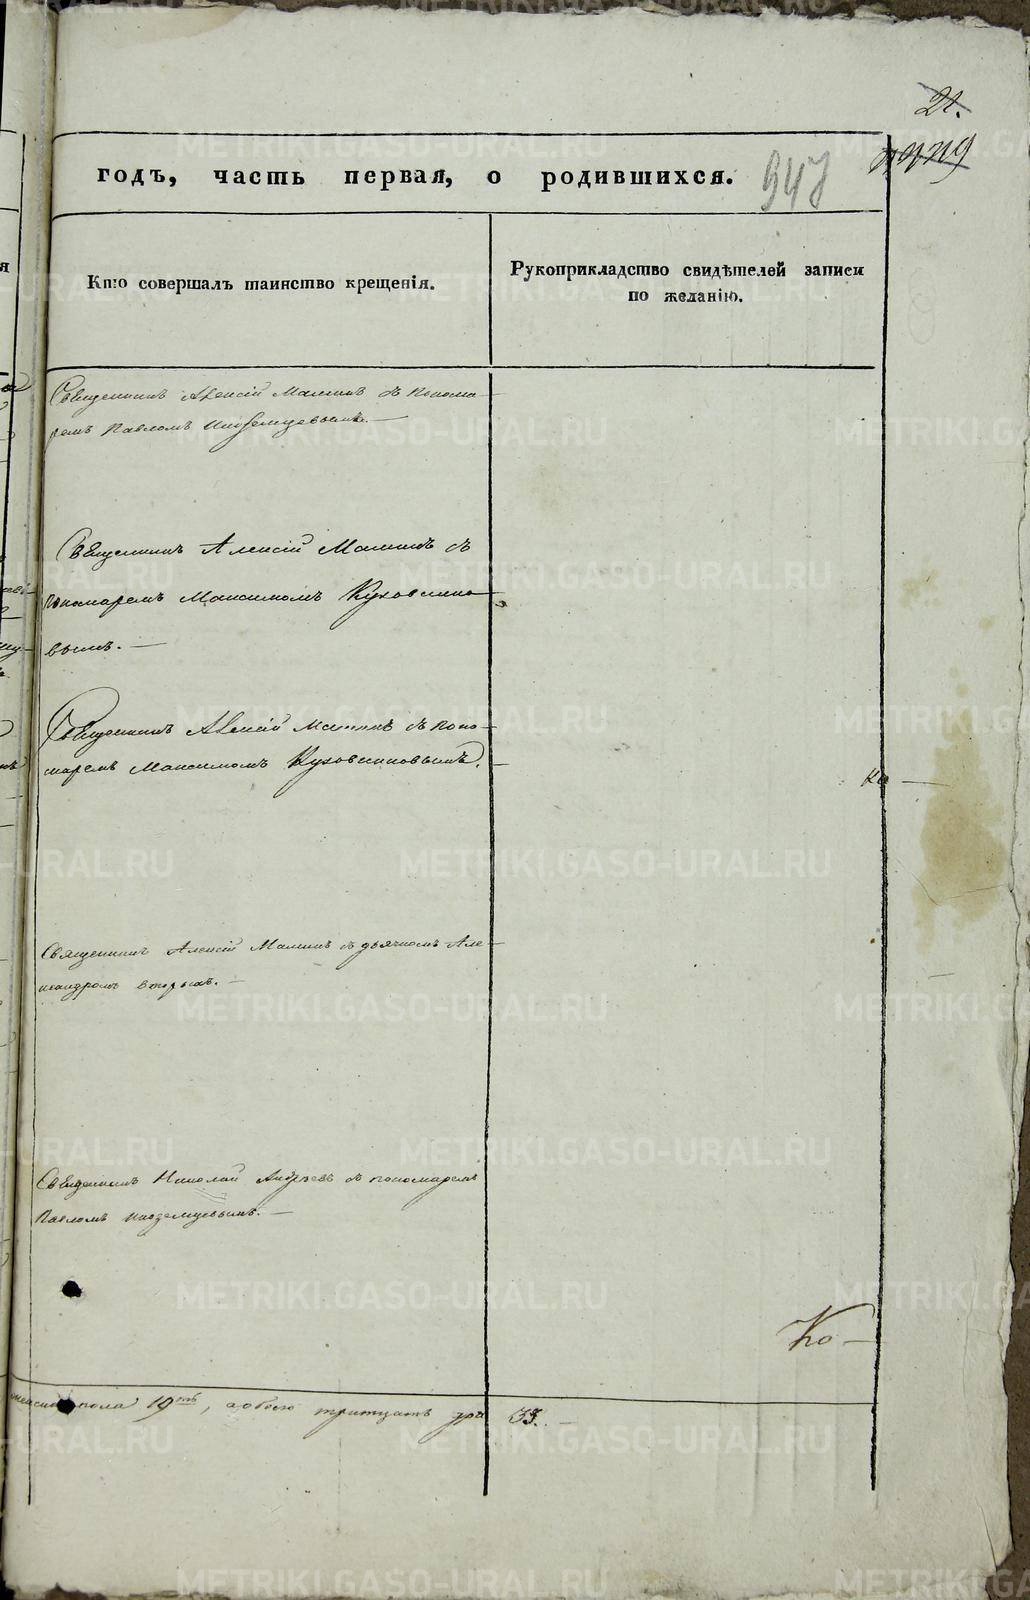 21.
947
годъ, часть первая, о родившихся.
Кто совершалъ таинство крещенія.
Рукоприкладство свидѣтелей записи
по желанію.
Священникъ Алексій Малинъ съ понома-
ремъ Павломъ Иноземцевымъ. —
Священникъ Алексій Малинъ съ
пономаремъ Максимомъ Кузовнико-
вымъ. —
Священникъ Алексій Малинъ съ поно-
маремъ Максимомъ Кузовниковымъ. —
Ка —
Священникъ Алексій Малинъ съ дьячкомъ Але-
ксандромъ
Священникъ Николай Андреевъ съ пономаремъ
Павломъ Иноземцевымъ. —
Ко —
пола 19ть, а обоего тритцать три 33. —
METRIKI.GASO-URAL.RU